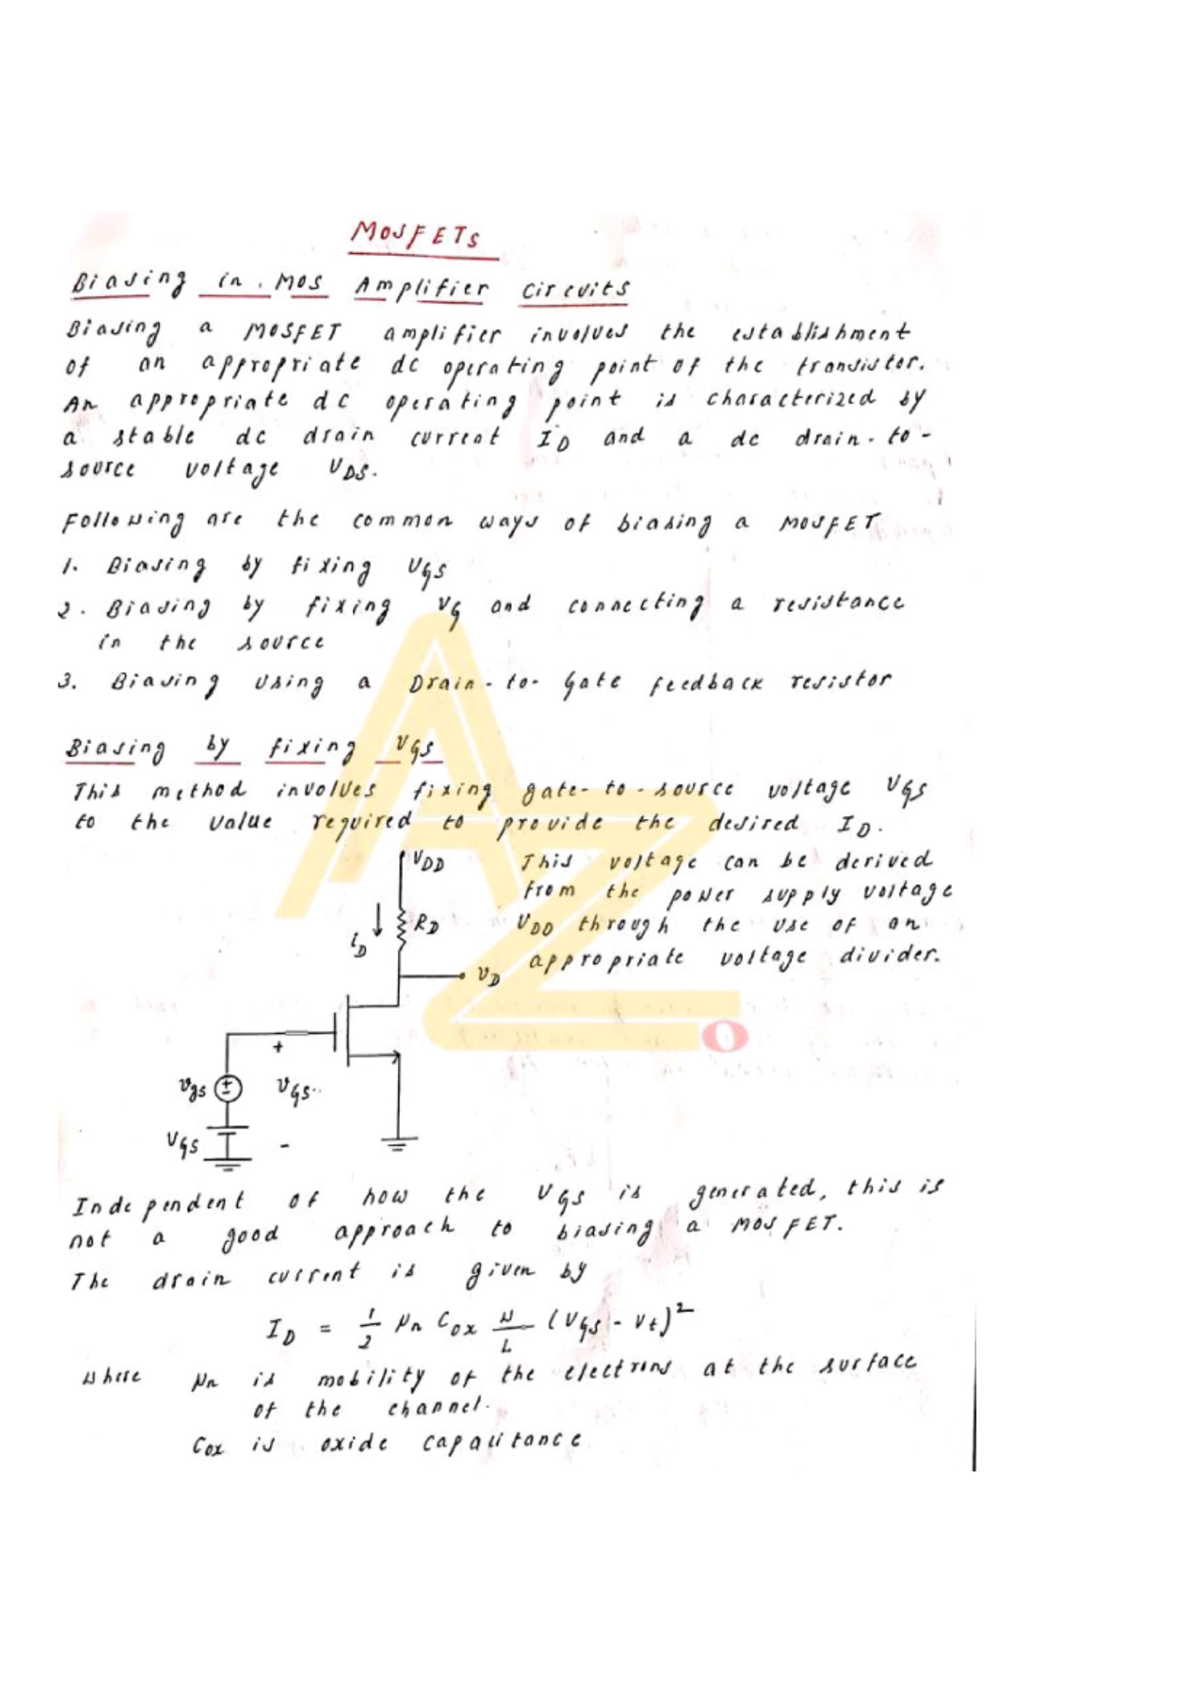 MOSFETs
Biasing in MOS Amplifier Circuits
Biasing a MOSFET amplifier involves the establishment
of an appropriate dc operating point of the transistor.
An appropriate dc operating point is characterized by
a stable dc drain current ID and a dc drain-to-
source voltage VDS.
Following are the common ways of biasing a MOSFET
1. Biasing by fixing VGS
2. Biasing by fixing VG and connecting a resistance
in the source
3. Biasing using a Drain-to-Gate feedback resistor
Biasing by fixing VGS
This method involves fixing gate-to-source voltage VGS
to the value required to provide the desired ID.
VDD
This voltage can be derived
from the power supply voltage
VDD through the use of an
appropriate voltage divider.
iD
RD
vD
+
vgs
vGS
VGS
-
Independent of how the VGS is generated, this is
not a good approach to biasing a MOSFET.
The drain current is given by
ID = 1/2 μn Cox W/L (VGS - Vt)²
where μn is mobility of the electrons at the surface
of the channel.
Cox is oxide capacitance
AZ
O